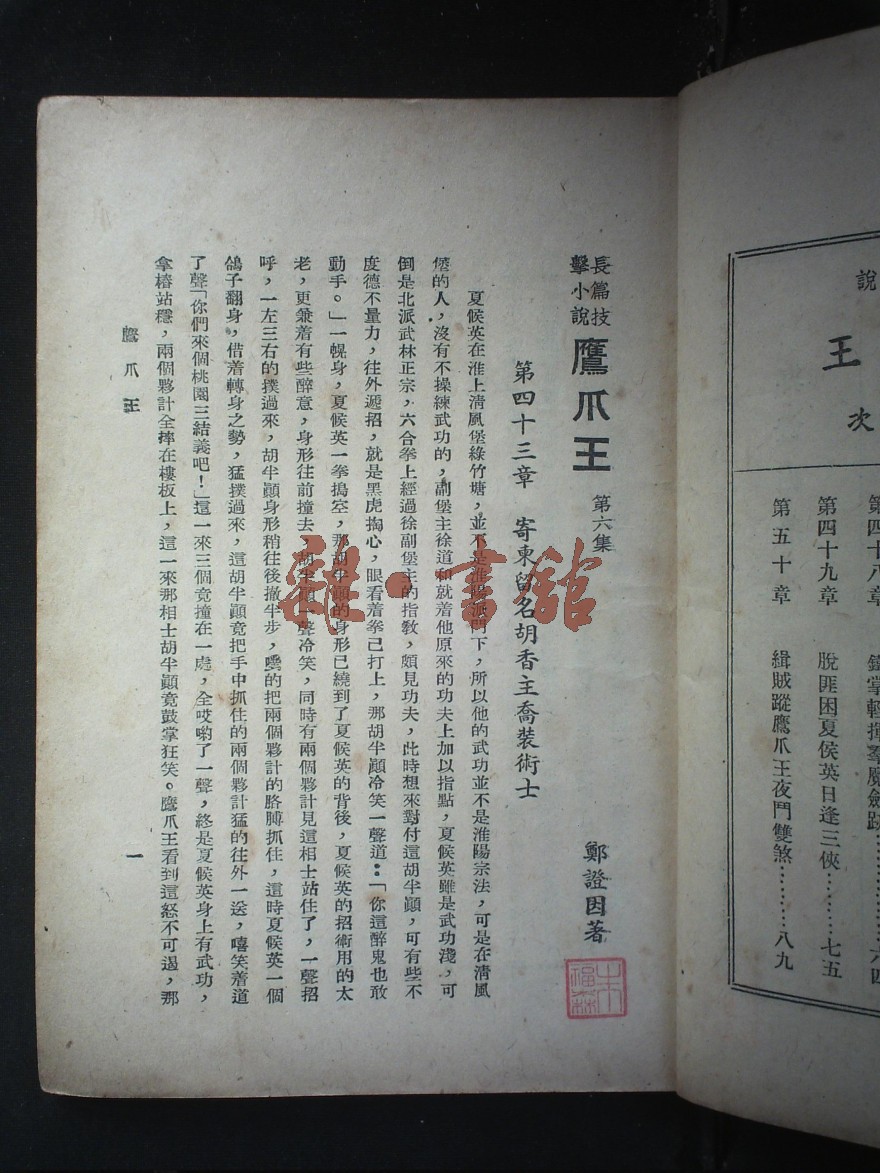 說
王
次
第四十八章
第四十九章 脫匪困夏侯英日逢三俠………七五
第五十章 緝賊蹤鷹爪王夜鬥雙煞………八九
長篇技
擊小說
鷹爪王 第六集 鄭證因著
第四十三章 寄柬留名胡香主喬裝術士
夏候英在淮上清風堡綠竹塘,並不是淮陽派門下,所以他的武功並不是淮陽宗法,可是在清風
堡的人,沒有不操練武功的,副堡主徐道和就着他原來的功夫上加以指點,夏候英雖是武功淺,可
倒是北派武林正宗,六合拳上經過徐副堡主的指教,頗見功夫,此時想來對付這胡半顚,可有些不
度德不量力,往外遞招,就是黑虎掏心,眼看着拳己打上,那胡半顚冷笑一聲道:「你這醉鬼也敢
動手。」一幌身,夏候英一拳搗空,那胡半顚的身形已繞到了夏候英的背後,夏候英的招術用的太
老,更兼着有些醉意,身形往前撞去,胡半顚一聲冷笑,同時有兩個夥計見這相士站住了,一聲招
呼,一左三右的撲過來,胡半顚身形稍往後撤半步,嘿的把兩個夥計的胳膊抓住,這時夏候英一個
鴿子翻身,借着轉身之勢,猛撲過來,這胡半顚竟把手中抓住的兩個夥計猛的往外一送,嘻笑着道
了聲「你們來個桃園三結義吧!」這一來三個竟撞在一處,全哎喲了一聲,終是夏候英身上有武功,
拿樁站穩,兩個夥計全摔在樓板上,這一來那相士胡半顚竟鼓掌狂笑。鷹爪王看到這怒不可遏,那
鷹爪王 一
雜·書館